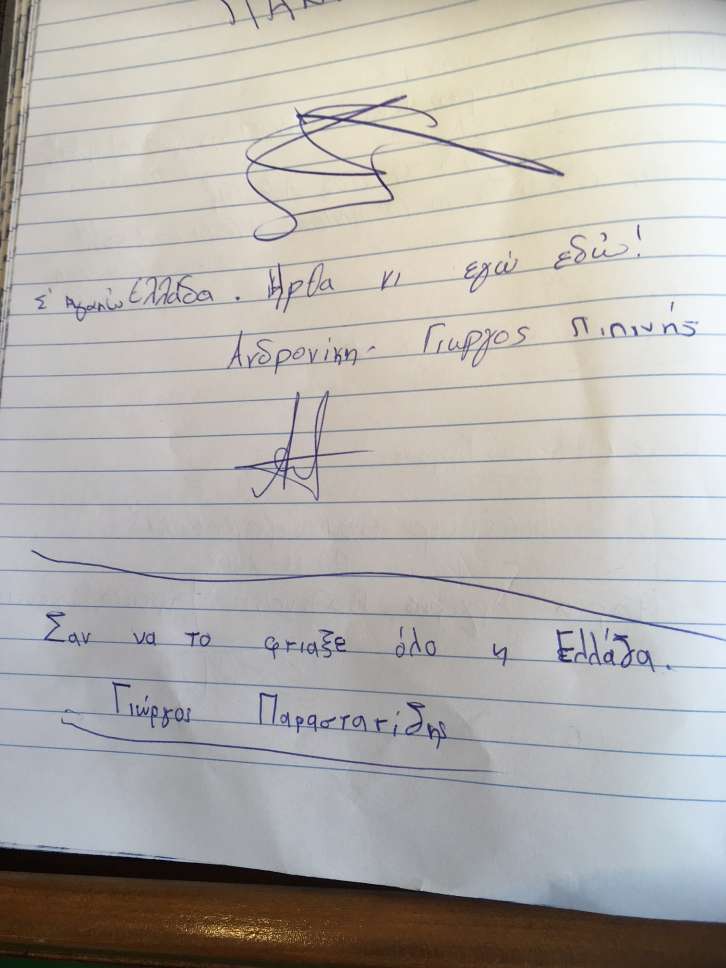 Σ' αγαπώ Ελλάδα. Ήρθα κι εγώ εδώ!
Ανδρονίκη - Γιώργος Πιπινής
Σαν να το φτιαξε όλο η Ελλάδα.
Γιώργος Παραστατίδης